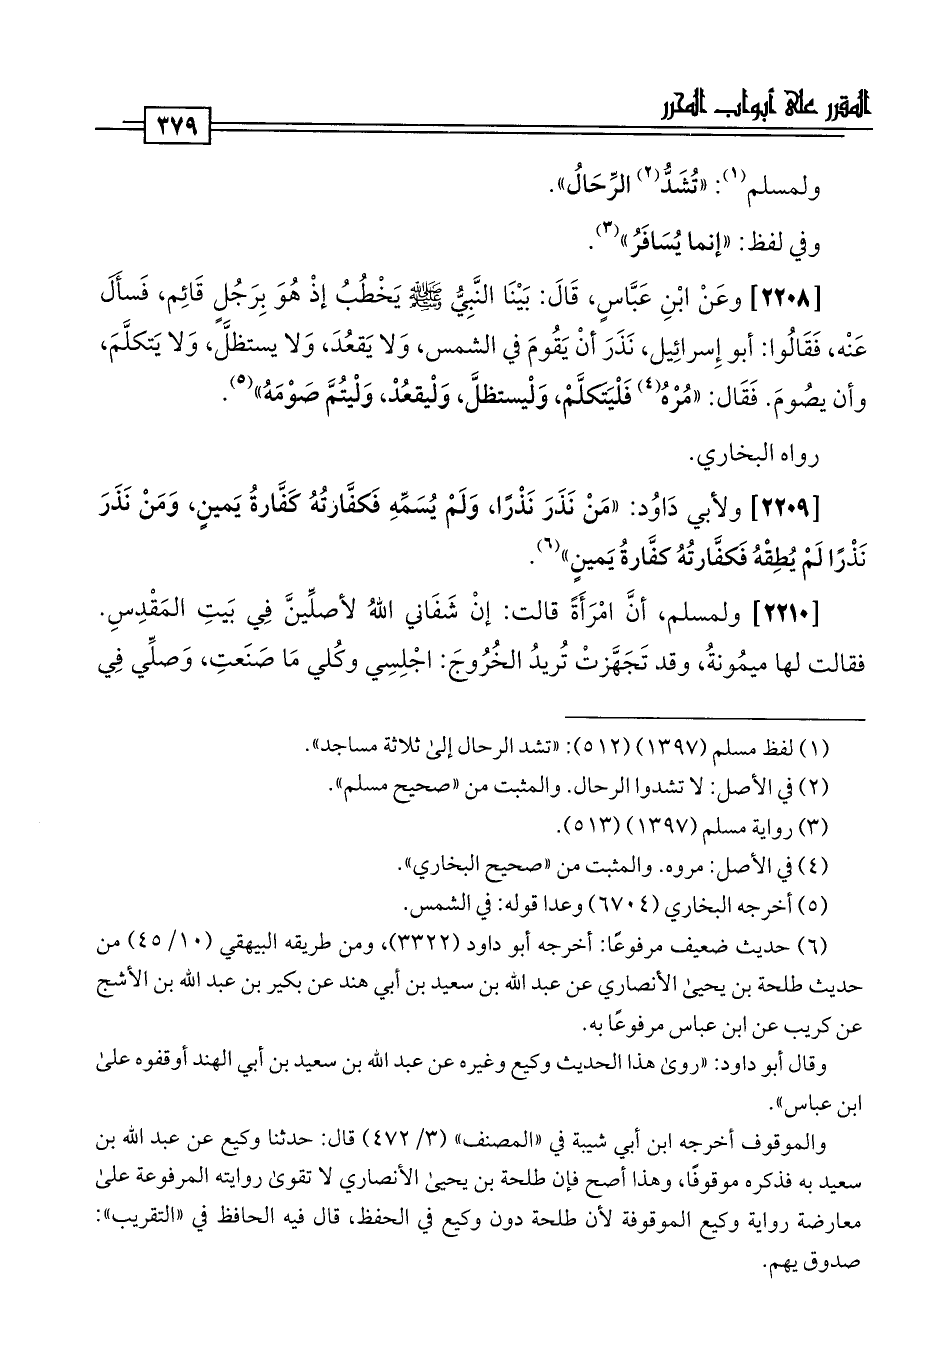 المقرر على أبواب المحرر
٣٧٩
ولمسلم(١): «تُشَدُّ(٢) الرِّحَالُ».
وفي لفظ: «إنما يُسَافَرُ»(٣).
[٢٢٠٨] وعَنْ ابْنِ عَبَّاسٍ، قَالَ: بَيْنَا النَّبِيُّ ﷺ يَخْطُبُ إذْ هُوَ بِرَجُلٍ قَائِم، فَسأَلَ
عَنْه، فَقَالُوا: أبو إسرائيل، نَذَر أنْ يَقُومَ في الشمس، وَلا يَقعُدَ، وَلا يستظلَّ، وَلا يَتكلَّمَ،
وأن يصُومَ. فَقَال: «مُرْهُ(٤) فَلْيَتكلَّمْ، وَلْيستظلَّ، وَلْيقعُدْ، وَلْيتُمَّ صَوْمَهُ»(٥).
رواه البخاري.
[٢٢٠٩] ولأبي دَاوُد: «مَنْ نَذَرَ نَذْرًا، وَلَمْ يُسَمِّهِ فَكفَّارَتُهُ كَفَّارةُ يَمينٍ، وَمَنْ نَذَرَ
نَذْرًا لَمْ يُطِقْهُ فَكفَّارتُهُ كفَّارةُ يَمينٍ»(٦).
[٢٢١٠] ولمسلم، أنَّ امْرَأَةً قالت: إنْ شَفَاني اللهُ لأصلِّينَّ فِي بَيتِ المَقْدِسِ.
فقالت لها ميمُونةُ، وقد تَجَهَّزتْ تُريدُ الخُروجَ: اجْلِسِي وكُلي مَا صَنَعتِ، وَصلِّي فِي
(١) لفظ مسلم (١٣٩٧) (٥١٢): «تشد الرحال إلىٰ ثلاثة مساجد».
(٢) في الأصل: لا تشدوا الرحال. والمثبت من «صحيح مسلم».
(٣) رواية مسلم (١٣٩٧) (٥١٣).
(٤) في الأصل: مروه. والمثبت من «صحيح البخاري».
(٥) أخرجه البخاري (٦٧٠٤) وعدا قوله: في الشمس.
(٦) حديث ضعيف مرفوعًا: أخرجه أبو داود (٣٣٢٢)، ومن طريقه البيهقي (١٠/ ٤٥) من
حديث طلحة بن يحيىٰ الأنصاري عن عبد الله بن سعيد بن أبي هند عن بكير بن عبد الله بن الأشج
عن كريب عن ابن عباس مرفوعًا به.
وقال أبو داود: «روىٰ هذا الحديث وكيع وغيره عن عبد الله بن سعيد بن أبي الهند أوقفوه علىٰ
ابن عباس».
والموقوف أخرجه ابن أبي شيبة في «المصنف» (٣/ ٤٧٢) قال: حدثنا وكيع عن عبد الله بن
سعيد به فذكره موقوفًا، وهذا أصح فإن طلحة بن يحيىٰ الأنصاري لا تقوىٰ روايته المرفوعة علىٰ
معارضة رواية وكيع الموقوفة لأن طلحة دون وكيع في الحفظ، قال فيه الحافظ في «التقريب»:
صدوق يهم.